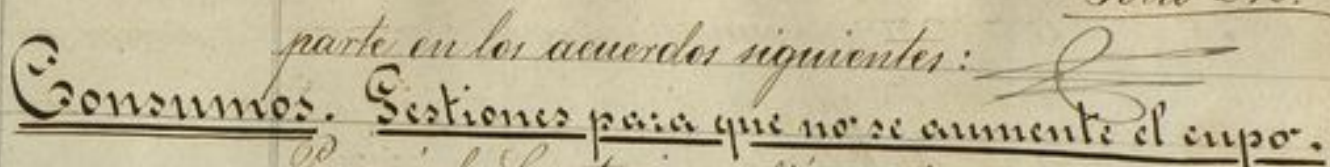 parte en los acuerdos siguientes:
Consumos. Gestiones para que no se aumente el cupo.